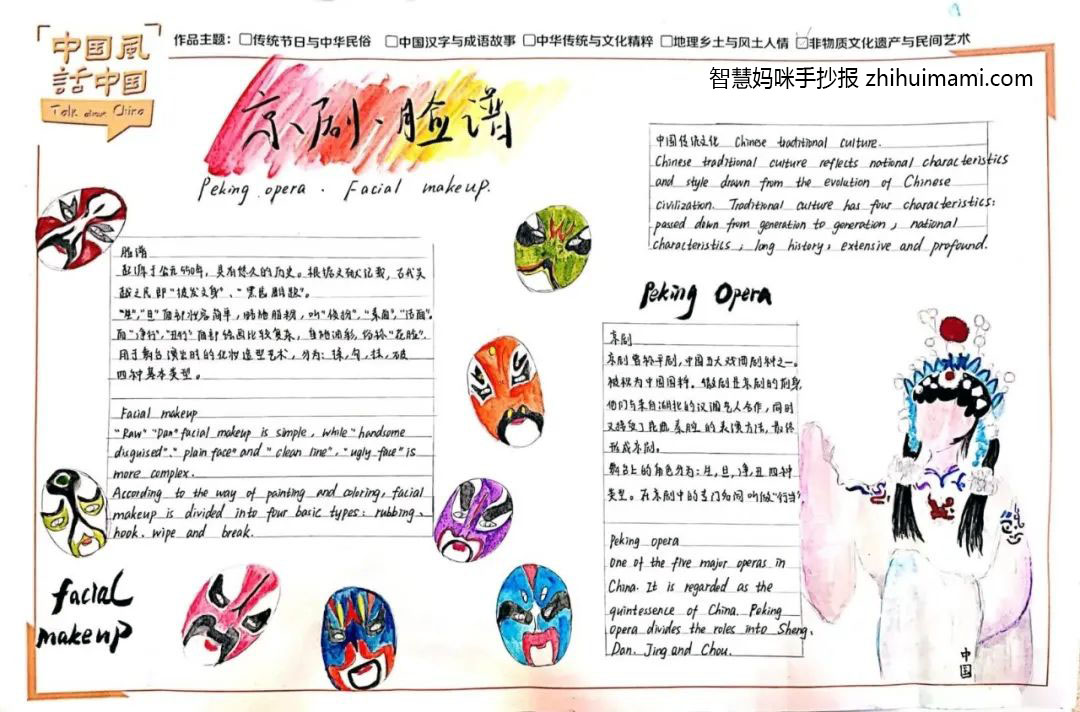 中国風
話中国
Talk about China
作品主题: □传统节日与中华民俗 □中国汉字与成语故事 □中华传统与文化精粹 □地理乡土与风土人情 ☑非物质文化遗产与民间艺术
智慧妈咪手抄报 zhihuimami.com
京剧、脸谱
Peking opera . Facial makeup.
中国传统文化 Chinese traditional culture.
Chinese traditional culture reflects national characteristics
and style drawn from the evolution of Chinese
civilization. Traditional culture has four characteristics:
passed down from generation to generation, national
characteristics, long history, extensive and profound.
脸谱
起源于公元550年,具有悠久的历史。根据文献记载,古代吴
越之民即"披发文身"、"黑齿雕题"。
"生","旦"面部妆容简单,略施脂粉,叫"俊扮","素面","洁面"。
而"净行","丑行"面部绘画比较复杂,
俗称"花脸"。
用于舞台演出时的化妆造型艺术,分为:揉,勾,抹,破
四种基本类型。
Facial makeup
"Raw" "Dan" facial makeup is simple, while "handsome
disguised". "plain face" and "clean line", "ugly face" is
more complex.
According to the way of painting and coloring, facial
makeup is divided into four basic types: rubbing、
hook、wipe and break.
facial
makeup
Peking Opera
京剧
京剧曾称平剧,中国五大戏曲剧种之一。
被视为中国国粹。徽剧是京剧的前身,
他们与来自湖北的汉调艺人合作,同时
又接受了昆曲、秦腔的表演方法,最终
形成京剧。
舞台上的角色分为:生,旦,净,丑四种
类型。在京剧中的专门名词叫做"行当"
Peking opera
one of the five major operas in
China. It is regarded as the
quintessence of China. Peking
opera divides the roles into Sheng、
Dan. Jing and Chou.
中国